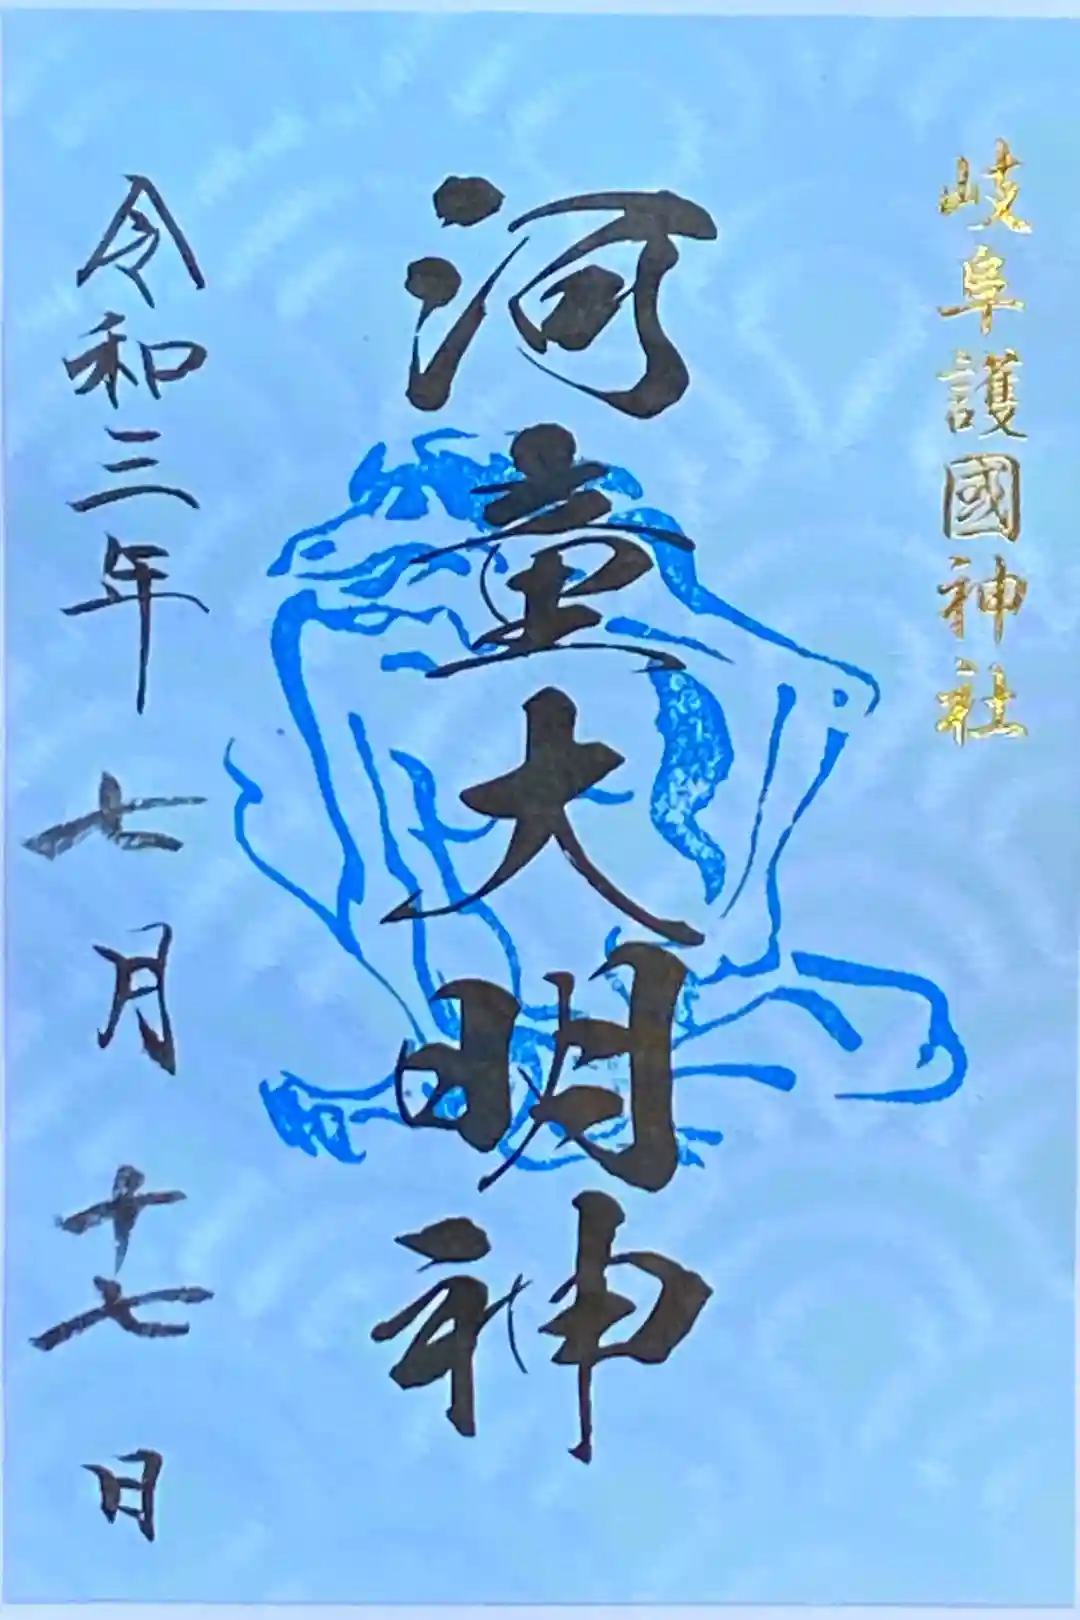 岐阜護國神社
河童大明神
令和三年七月十七日